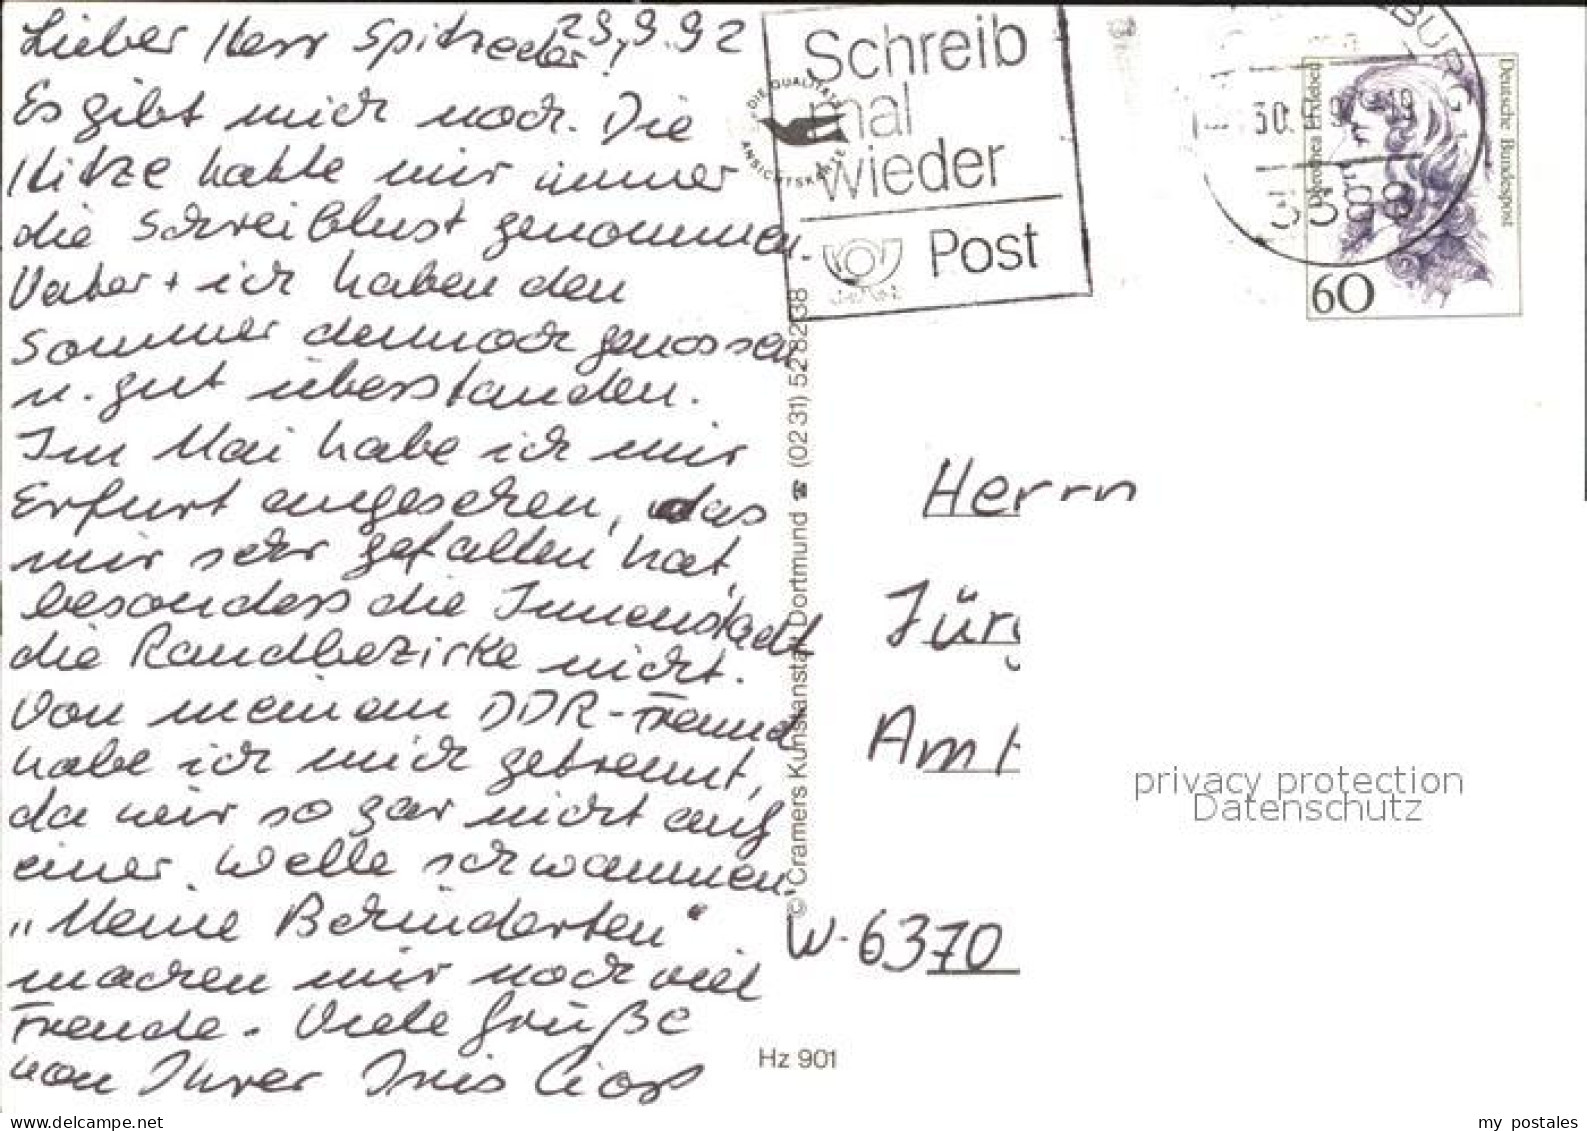 29.9.92
Lieber Herr Spitzeder!
Es gibt mich noch. Die
Hitze hatte mir immer
die Schreiblust genommen.
Vater + ich haben den
Sommer dennoch genossen
u. gut überstanden.
Im Mai habe ich mir
Erfurt angesehen, das
mir sehr gefallen hat,
besonders die Innenstadt
die Randbezirke nicht.
Von meinem DDR-Freund
habe ich mich getrennt,
da wir so gar nicht auf
einer Welle schwammen.
„Meine Behinderten"
machen mir noch viel
Freude. Viele Grüße
von Ihrer Iris
Schreib
mal
wieder
Post
DIE QUALITÄTS
ANSICHTSKARTE
BURG
30.
Deutsche Bundespost
Dorothea Erxleben
60
© Cramers Kunstanstalt Dortmund ☎ (0231) 528238
Herrn
Jürg
Amt
W-6370
privacy protection
Datenschutz
Hz 901
www.delcampe.net
my postales